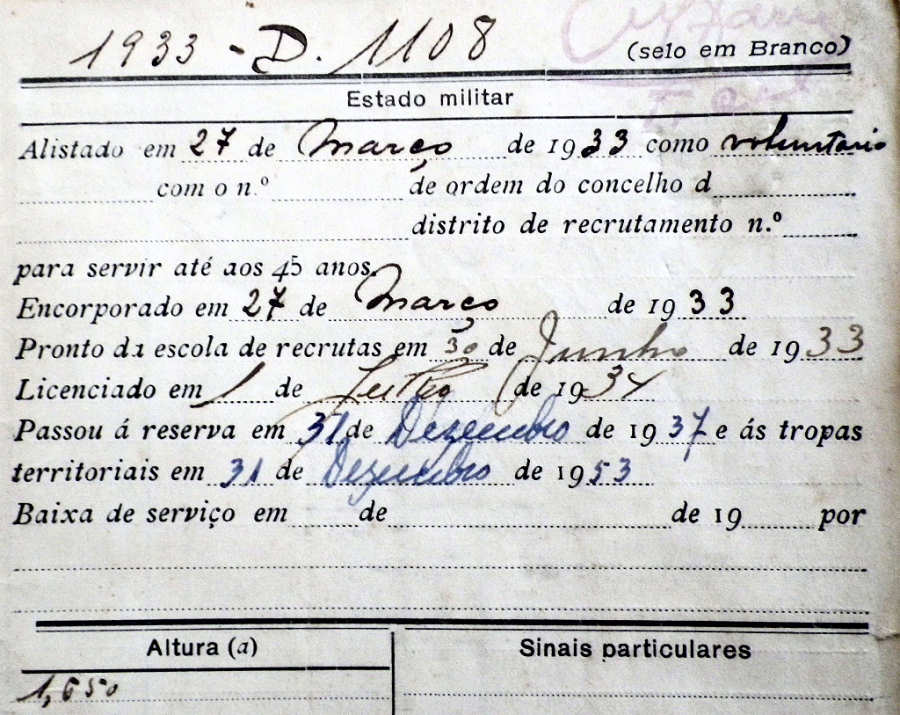 1933 - D. 1108
(selo em Branco)
Estado militar
Alistado em 27 de Março de 1933 como voluntario
com o n.º de ordem do concelho d
distrito de recrutamento n.º
para servir até aos 45 anos.
Encorporado em 27 de Março de 1933
Pronto da escola de recrutas em 30 de Junho de 1933
Licenciado em 1 de de 1934
Passou á reserva em 31 de Dezembro de 1937 e ás tropas
territoriais em 31 de Dezembro de 1953
Baixa de serviço em de de 19 por
Altura (a) Sinais particulares
1,650